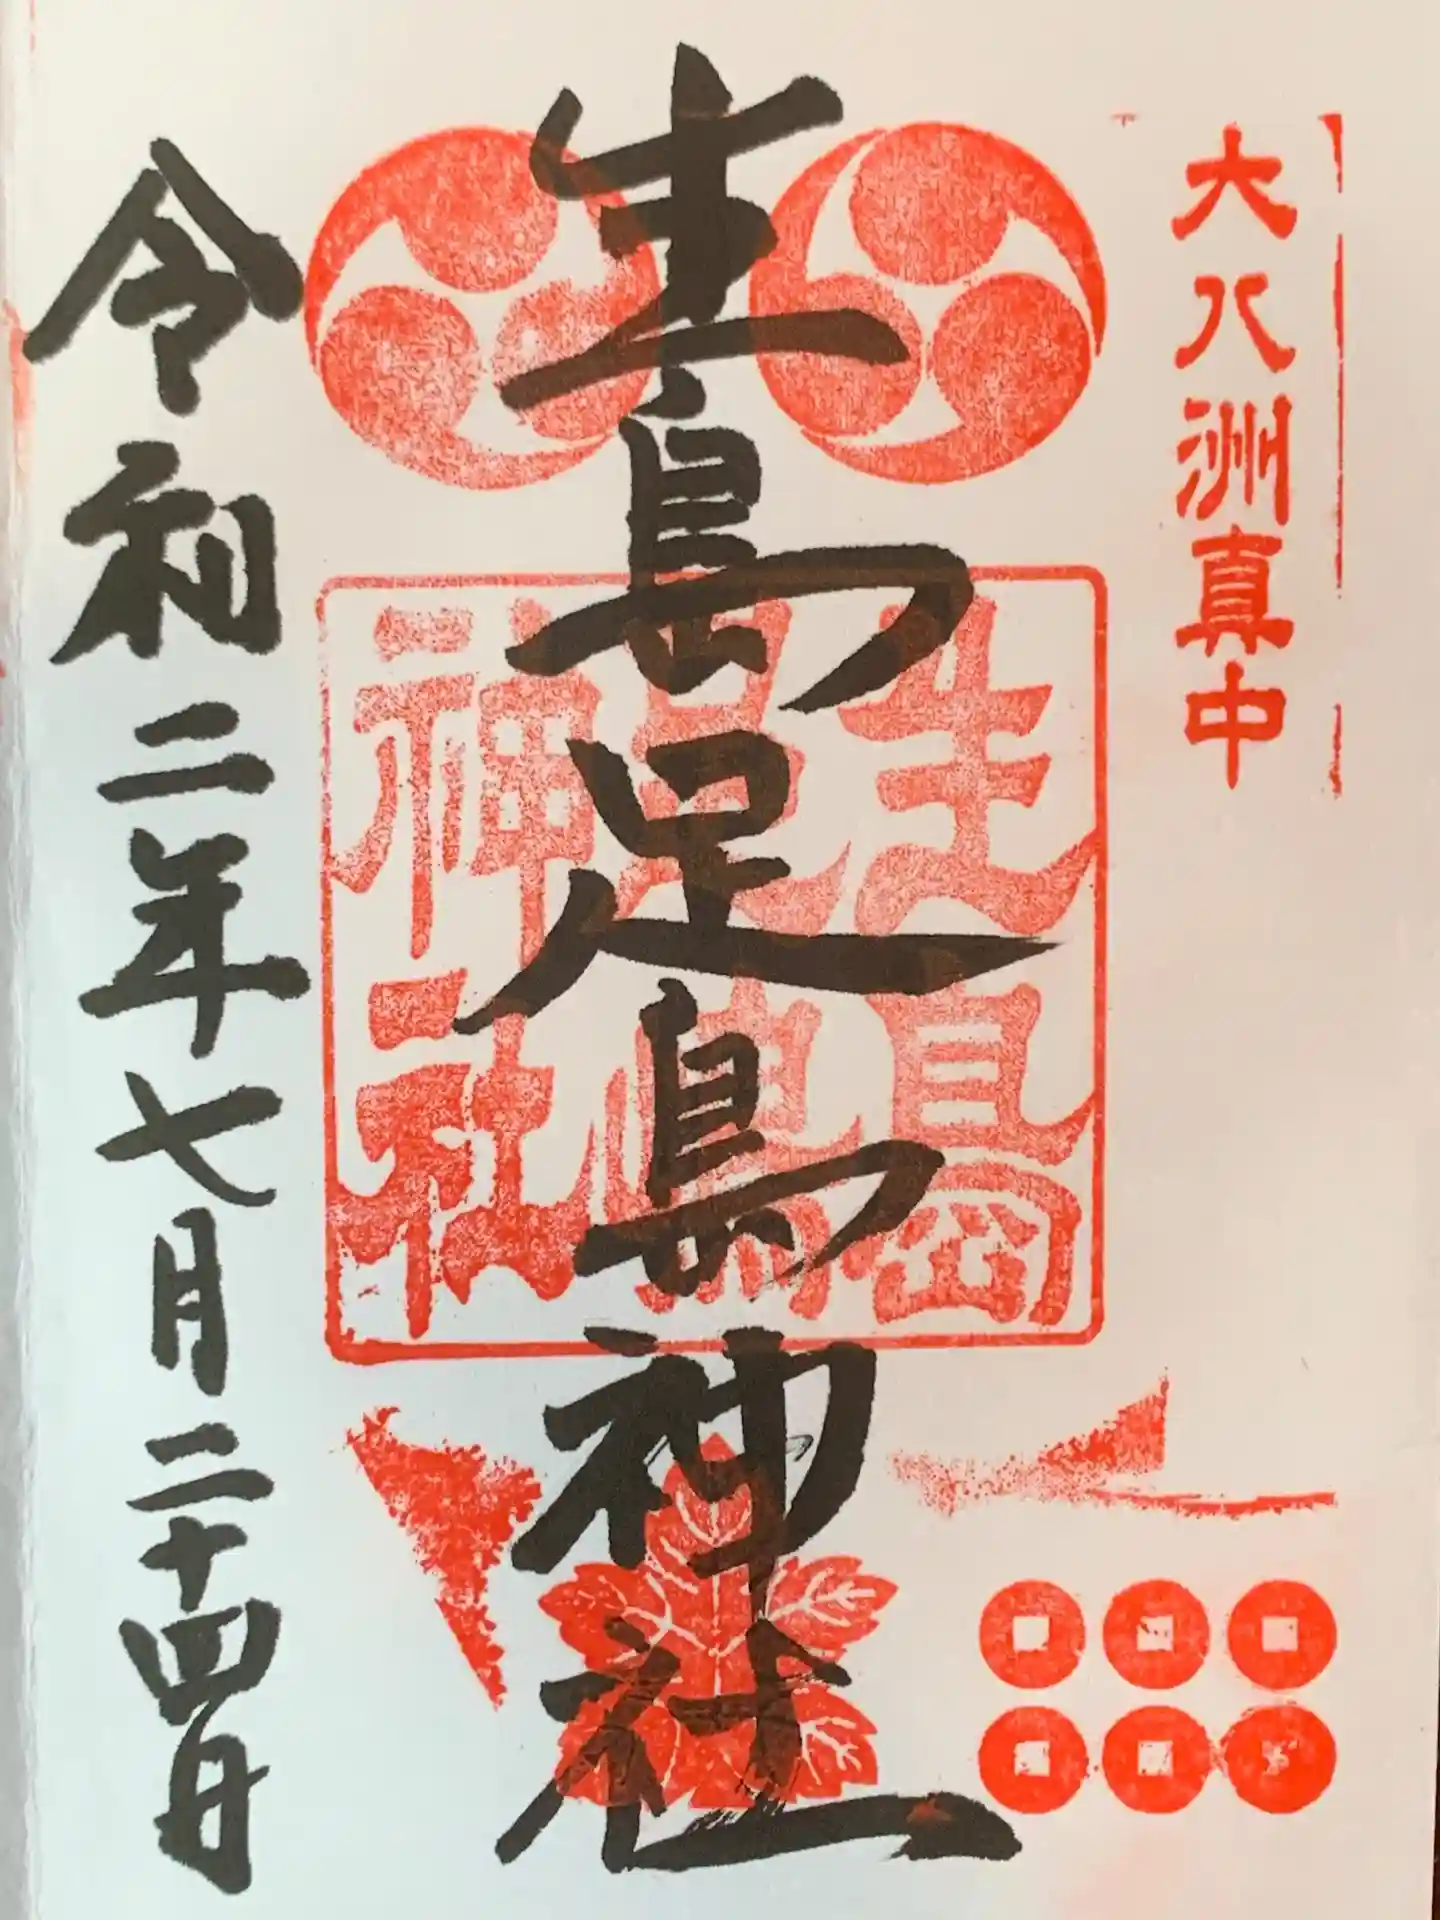 大八洲真中
生島足島神社
生島足島神社
令和二年七月二十四日